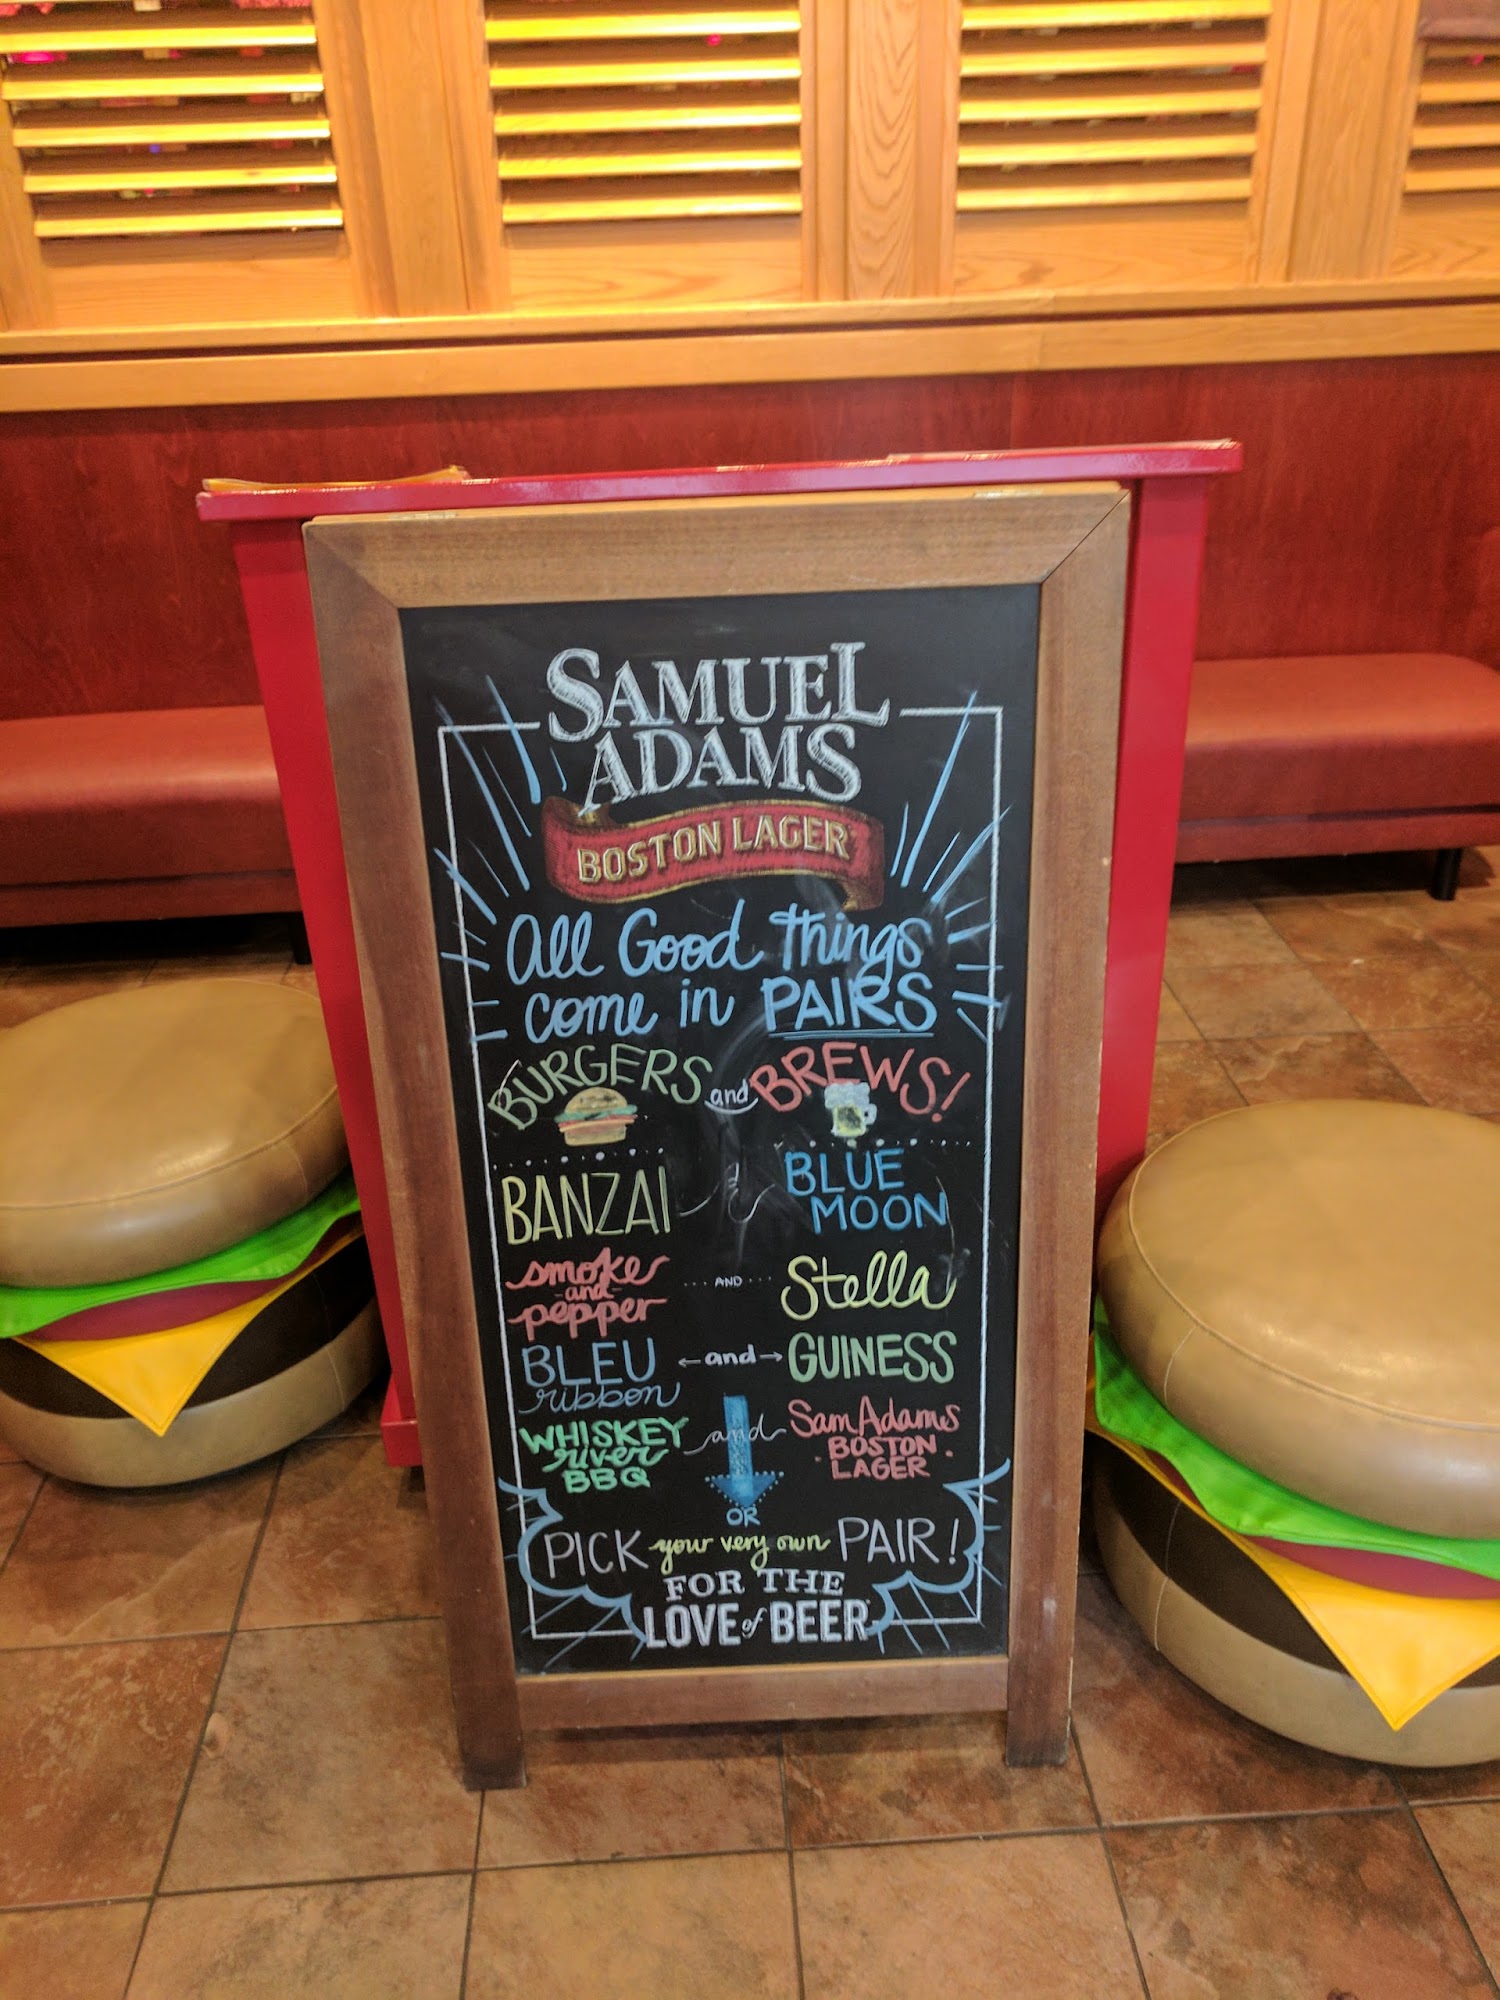 SAMUEL
ADAMS
BOSTON LAGER
All Good Things
come in PAIRS
BURGERS and BREWS!
BANZAI BLUE MOON
smoke and pepper AND Stella
BLEU ribbon and GUINESS
WHISKEY river BBQ and Sam Adams BOSTON LAGER
OR
PICK your very own PAIR!
FOR THE
LOVE of BEER